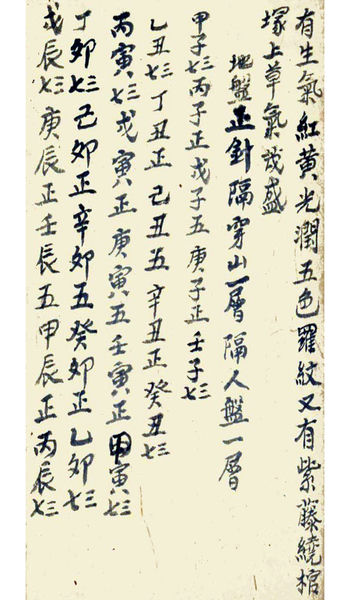 有生氣紅黃光潤五色羅紋又有紫藤繞棺
塚上草氣茂盛
地盤正針隔穿山一層隔人盤一層
甲子七三丙子正戊子五庚子正壬子七三
乙丑七三丁丑正己丑五辛丑正癸丑七三
丙寅七三戊寅正庚寅五壬寅正甲寅七三
丁卯七三己卯正辛卯五癸卯正乙卯七三
戊辰七三庚辰正壬辰五甲辰正丙辰七三